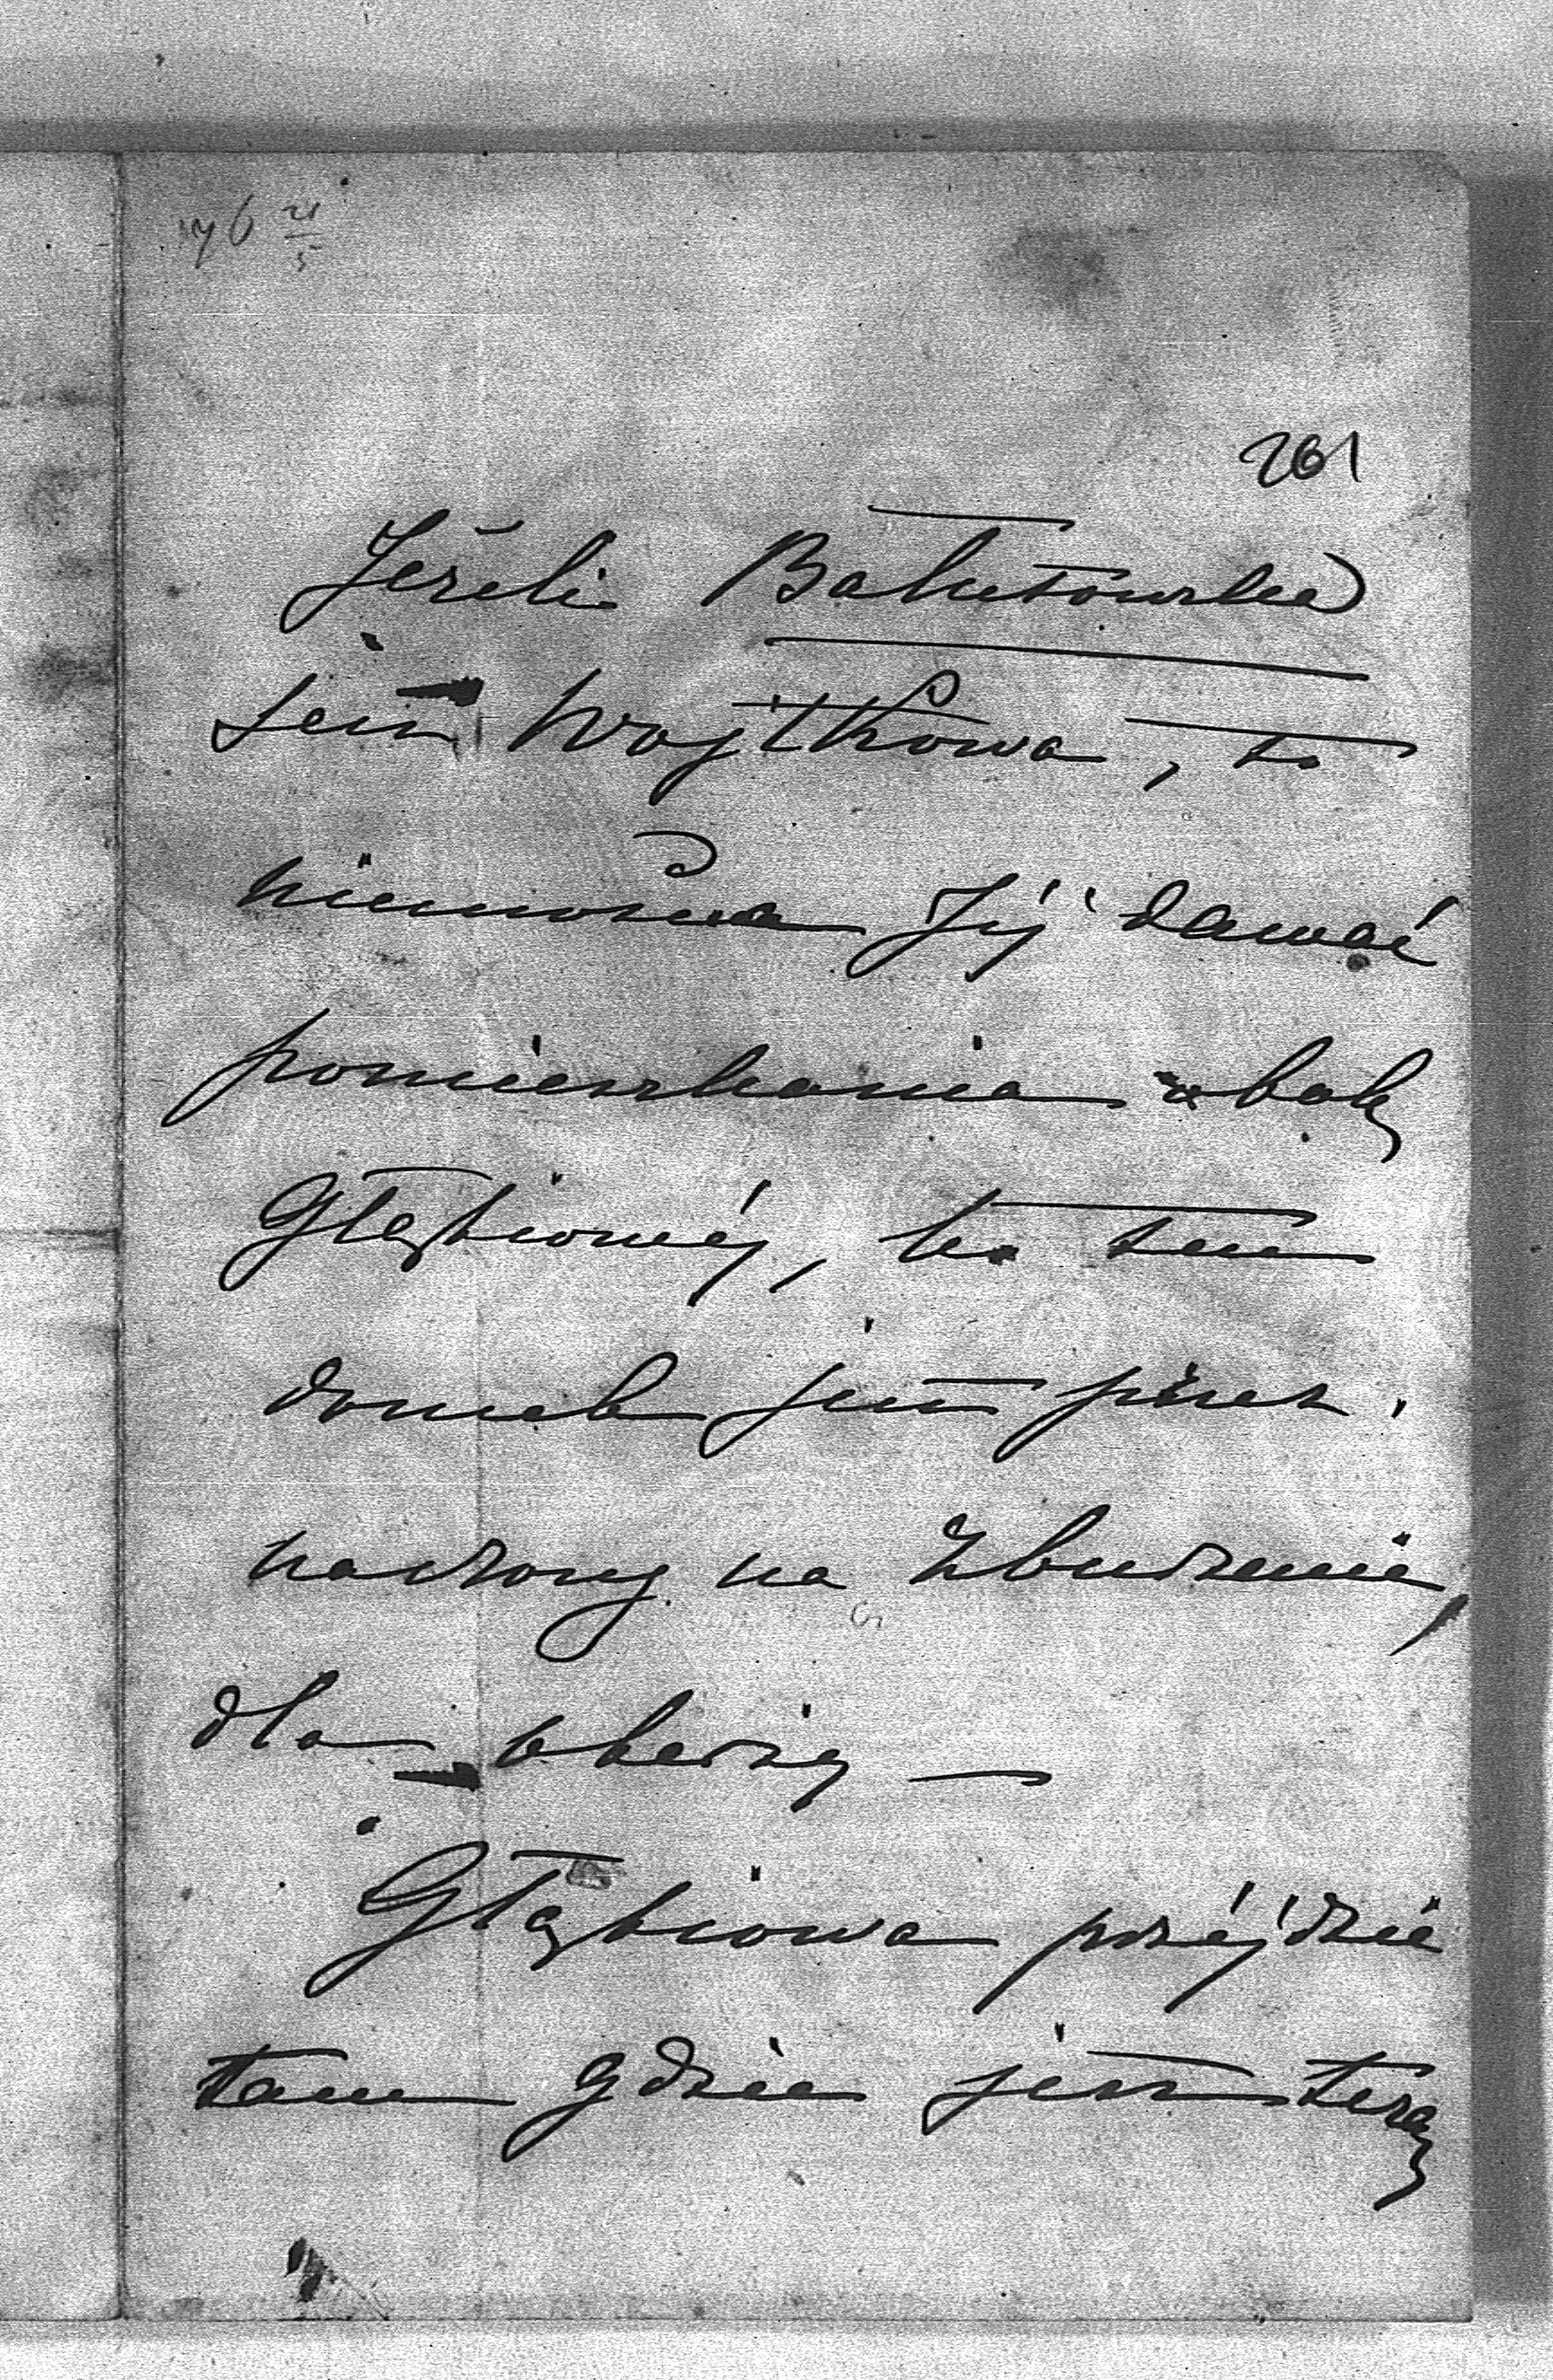 96 21/5
261
Jeżeli Bałutowska
jest Wojtkowa, to
niemożna Jéj dawać
pomieszkania obok
Głąbiowéj, bo ten
domek jest przez-
naczony na Zburzenie,
dla oberży —
Głąbiowa przéjdzie
tam gdzie jest teraz